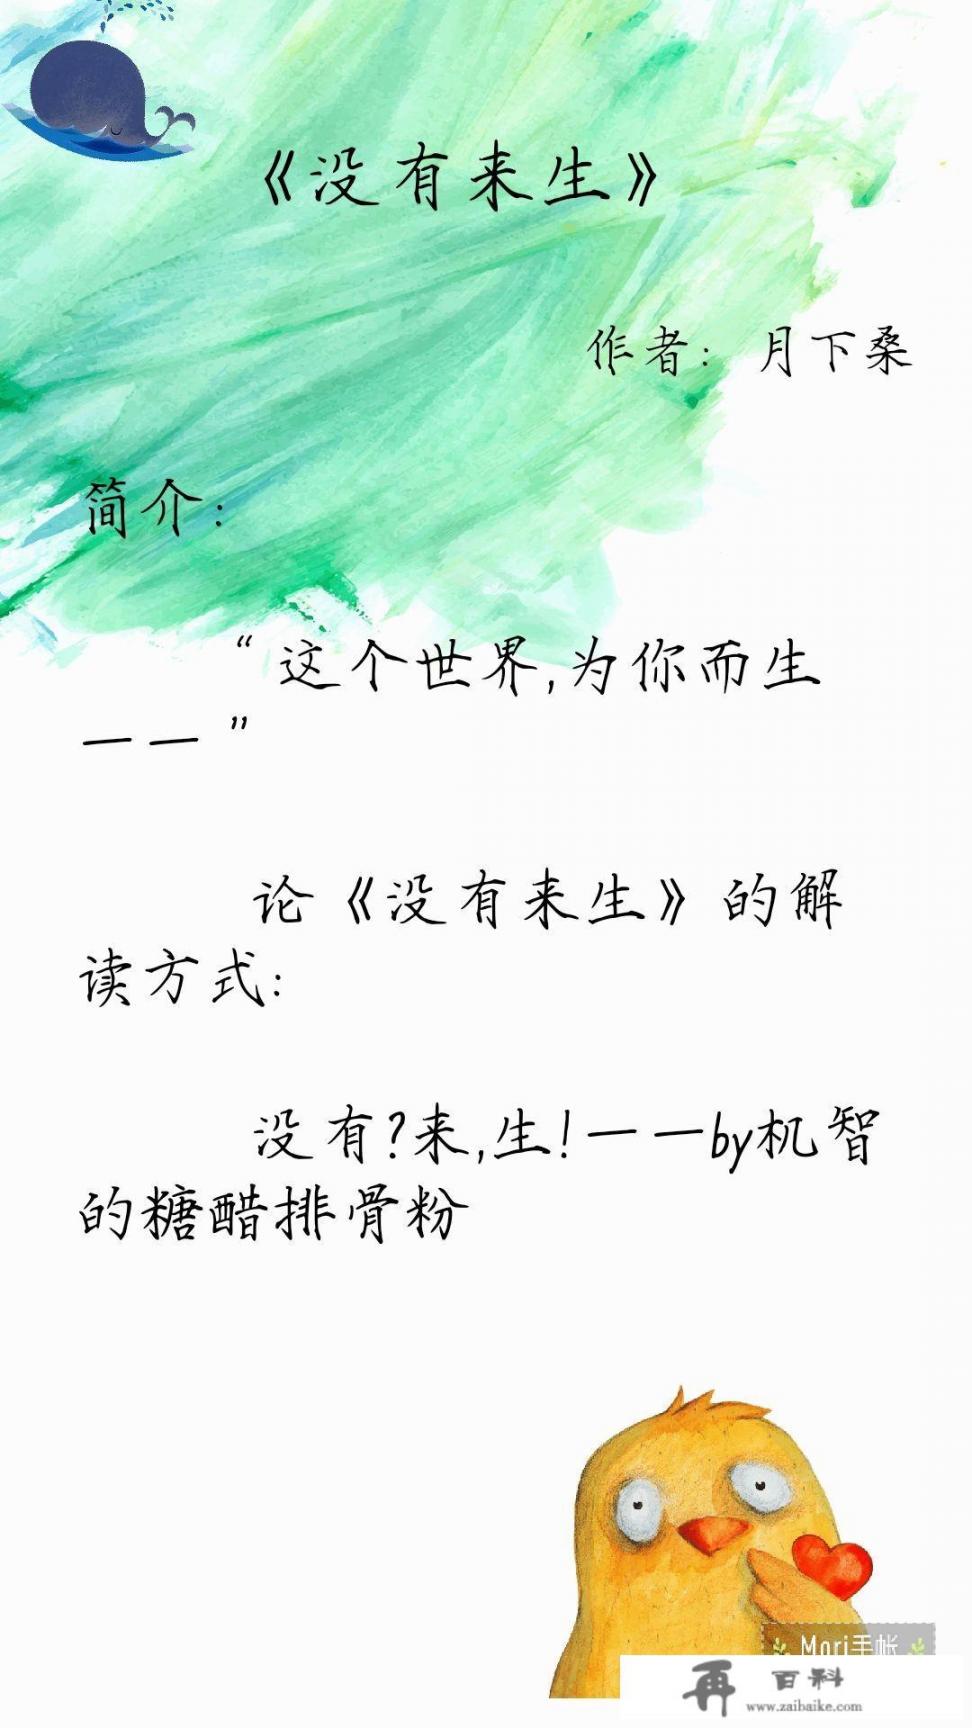 《没有来生》
作者：月下桑
简介：
“这个世界,为你而生
——”
论《没有来生》的解
读方式:
没有?来,生!——by机智
的糖醋排骨粉
Mori手帐
再 百科
www.zaibaike.com